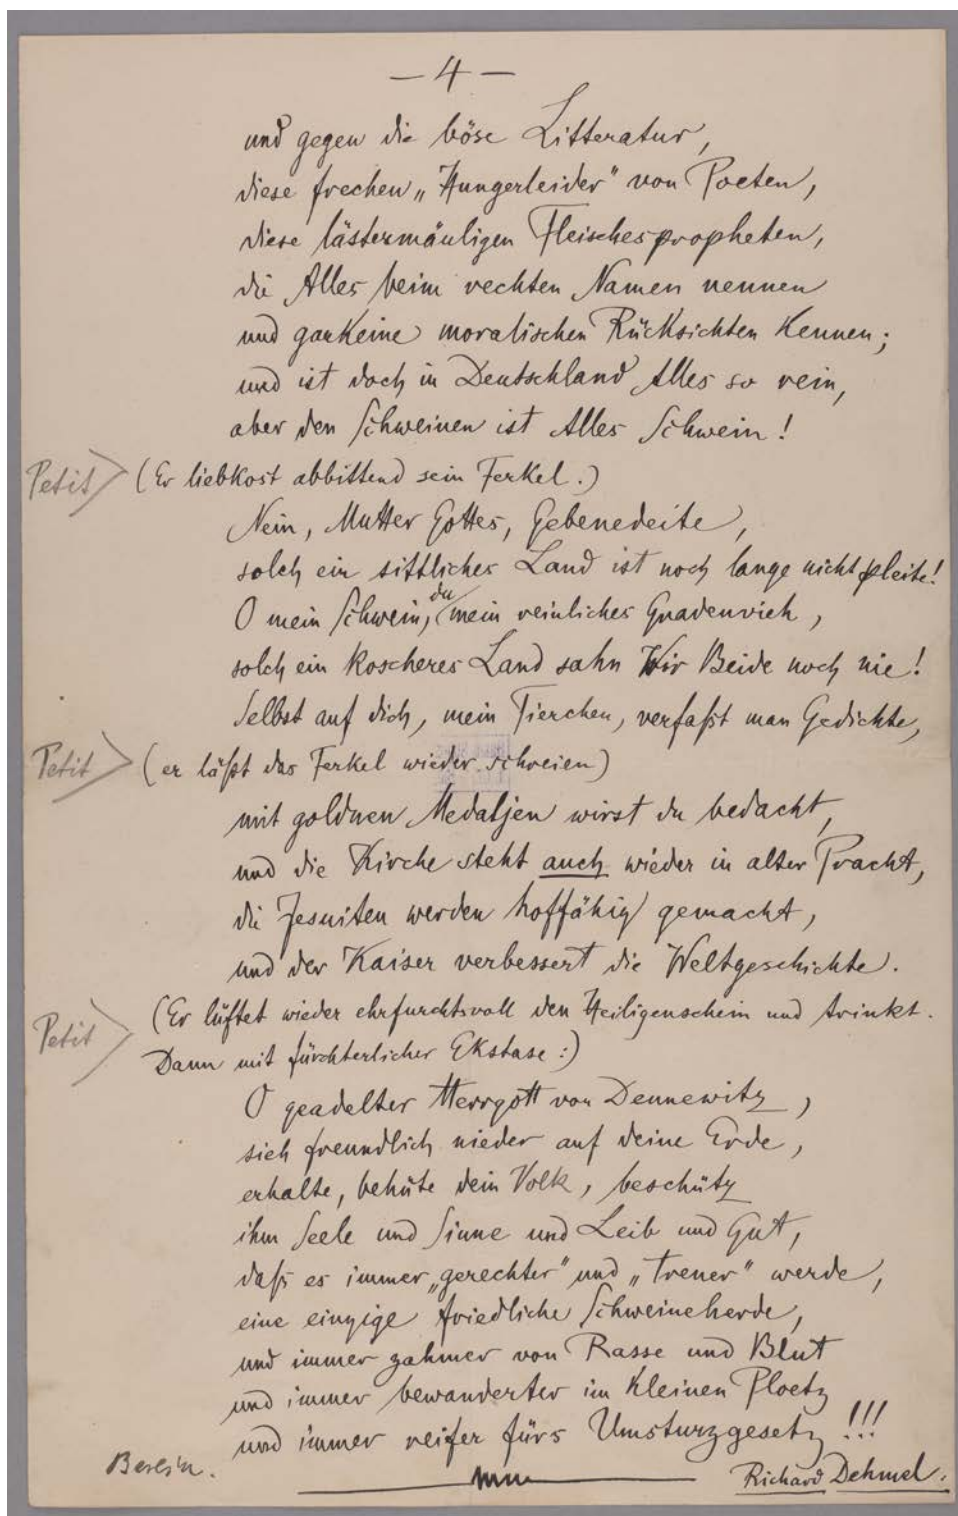 — 4 —
und gegen die böse Litteratur,
diese frechen „Hungerleider“ von Poeten,
diese lästermäuligen Fleischespropheten,
die Alles beim rechten Namen nennen
und garkeine moralischen Rücksichten kennen;
und ist doch in Deutschland Alles so rein,
aber den Schweinen ist Alles Schwein!
Petit (Er liebkost abbittend sein Ferkel.)
Nein, Mutter Gottes, Gebenedeite,
solch ein sittliches Land ist noch lange nicht pleite!
O mein Schwein, du mein reinliches Gnadenvieh,
solch ein koscheres Land sahn Wir Beide noch nie!
Selbst auf dich, mein Tierchen, verfaßt man Gedichte,
Petit (er läßt das Ferkel wieder schreien)
mit goldnen Medaljen wirst du bedacht,
und die Kirche steht auch wieder in alter Pracht,
die Jesuiten werden hoffähig gemacht,
und der Kaiser verbessert die Weltgeschichte.
Petit (Er lüftet wieder ehrfurchtsvoll den Heiligenschein und trinkt.
Dann mit fürchterlicher Ekstase:)
O geadelter Herrgott von Dennewitz,
sieh freundlich nieder auf deine Erde,
erhalte, behüte dein Volk, beschütz
ihm Seele und Sinne und Leib und Gut,
daß es immer „gerechter“ und „treuer“ werde,
eine einzige friedliche Schweineherde,
und immer zahmer von Rasse und Blut
und immer bewanderter im kleinen Ploetz
und immer reifer fürs Umsturzgesetz!!!
Berlin. Richard Dehmel.